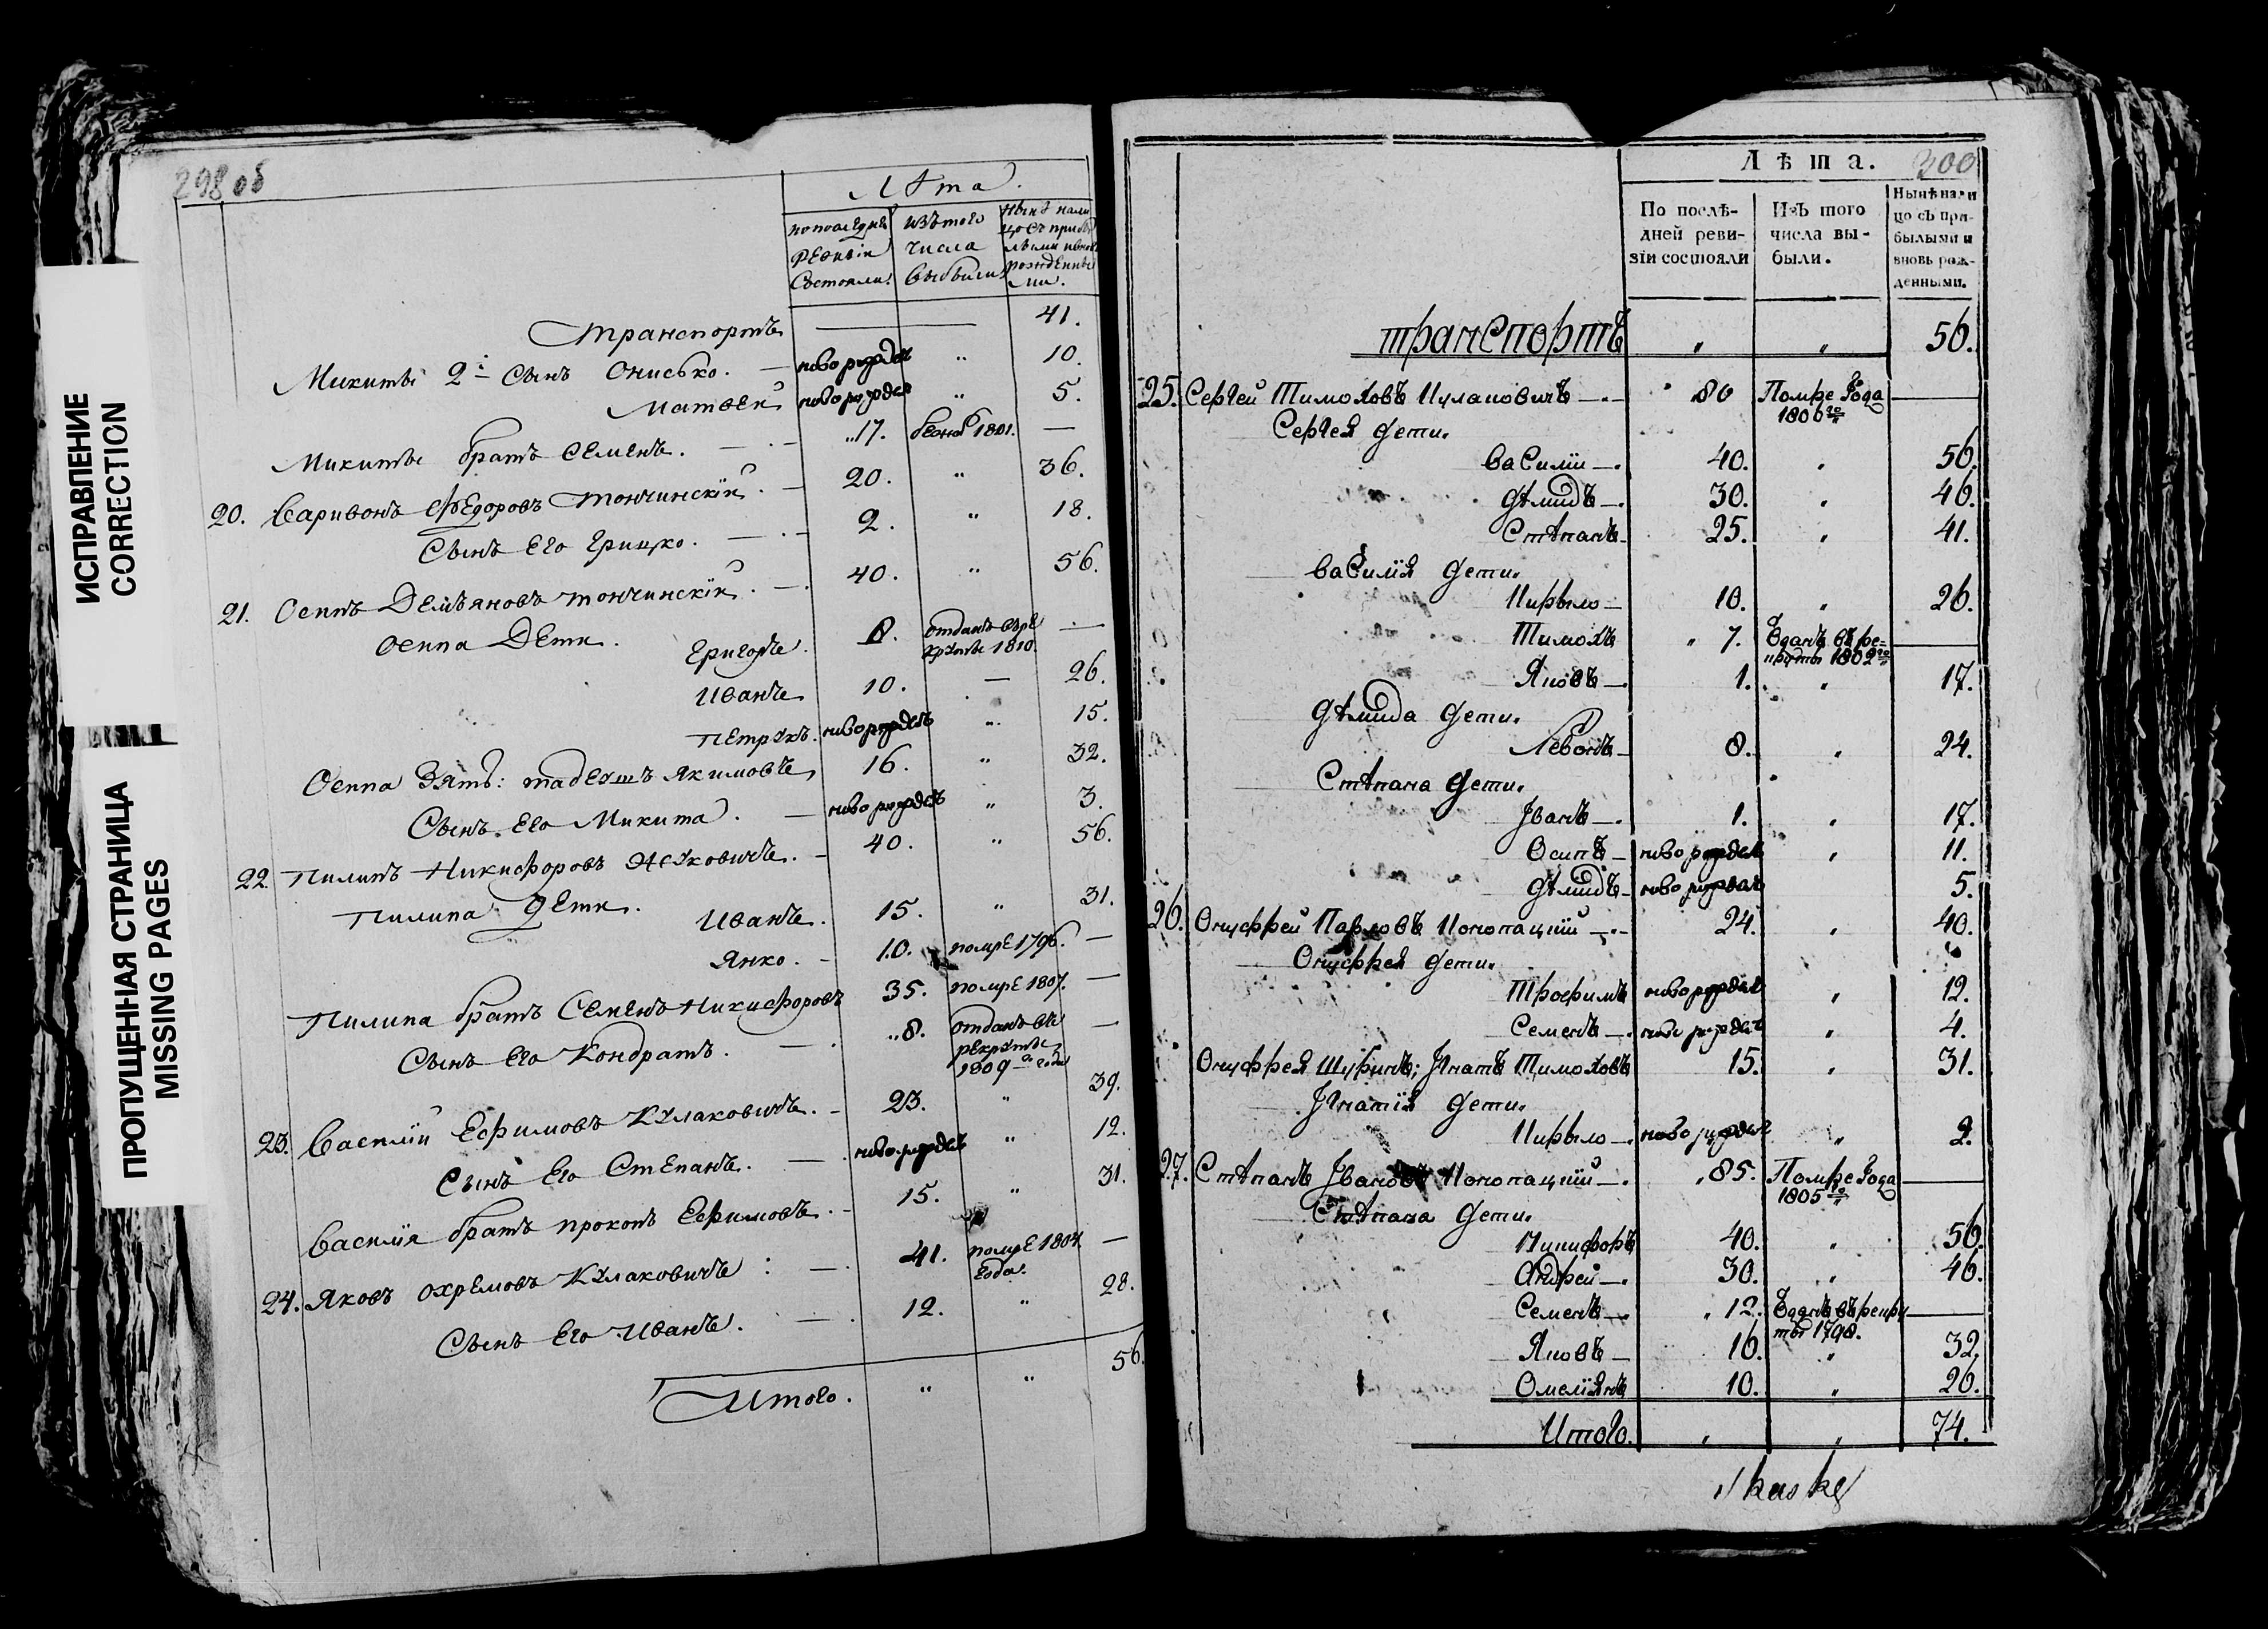 ИСПРАВЛЕНИЕ
CORRECTION
ПРОПУЩЕННАЯ СТРАНИЦА
MISSING PAGES
298 об
Лѣта.
Транспортъ 41.
Микиты 2й Сынъ Онисько. — новорожденъ „ 10.
Матвей новорожден „ 5.
Микиты братъ Семенъ. — „17. 1801. —
20. Варивонъ Федоровъ Тончинскій. — 20. „ 36.
Сынъ Его Грицко. — 2. „ 18.
21. Осипъ Демъяновъ Тончинскій. — 40. „ 56.
Осипа Дети.
Григоре. 8. отданъ въ рекруты 1810. —
Иванъ 10. — 26.
Петрукъ. новорожденъ „ 15.
Осипа Зять: тадеушъ Якимовъ 16. „ 32.
Сынъ Его Микита. — новорожденъ „ 3.
22. Пилипъ Никифоровъ — 40. „ 56.
Пилипа Дети.
Иванъ. 15. „ 31.
Янко. — 10. помре 1796. —
Пилипа братъ Семенъ Никифоровъ 35. помре 1807. —
Сынъ Его Кондратъ. — „8. отданъ въ —
рекруты
1809го года
23. Василій Ефимовъ Кулаковичъ. — 23. „ 39.
Сынъ Его Степанъ. — новорожденъ „ 12.
Василія братъ прокопъ Ефимовъ. — 15. „ 31.
24. Яковъ Охремовъ Кулаковичъ : — 41. помре 1804 —
года.
Сынъ Его Иванъ. — 12. „ 28.
Итого. „ „ 56.
Лѣта. 300
По послѣ-
дней реви-
зіи состояли
Изъ того
числа вы-
были.
Нынѣ на ли
цо съ при-
былыми и
вновь раж-
денными.
транспортъ „ „ 56.
25. Сергей Тимоховъ Кулаковичъ —.— 80 Помре Года —
1806го
Сергея дети.
Василій —. 40. „ 56.
Дѣмидъ —. 30. „ 46.
Стѣпанъ — 25. „ 41.
Василія дети.
Кирыло — 10. „ 26.
Тимохъ „ 7. Зданъ въ ре- —
круты 1802го
Яковъ —. 1. „ 17.
Дѣмида дети.
Левонъ — 8. „ 24.
Стѣпана дети.
Іванъ —. 1. „ 17.
Осипъ — новорожденъ „ 11.
Дѣмидъ — новорожденъ 5.
26. Онуфрей Павловъ Конопацкій —.— 24. „ 40.
Онуфрея дети.
Трофимъ новорожденъ „ 12.
Семенъ —. новорожденъ „ 4.
Онуфрея Шуринъ; Ігнатъ Тимоховъ 15. „ 31.
Ігнатія дети.
Кирыло —. новорожденъ „ 2.
27. Стѣпанъ Івановъ Конопацкій —. „85. Помре Года —
1805го
Стѣпана дети.
Никифоръ 40. „ 56.
Андрей —. 30. „ 46.
Семенъ —. „ 12. Зданъ въ рекру —
ты 1798.
Яковъ — 16. „ 32.
Омелiянъ 10. „ 26.
Итого. „ „ 74.